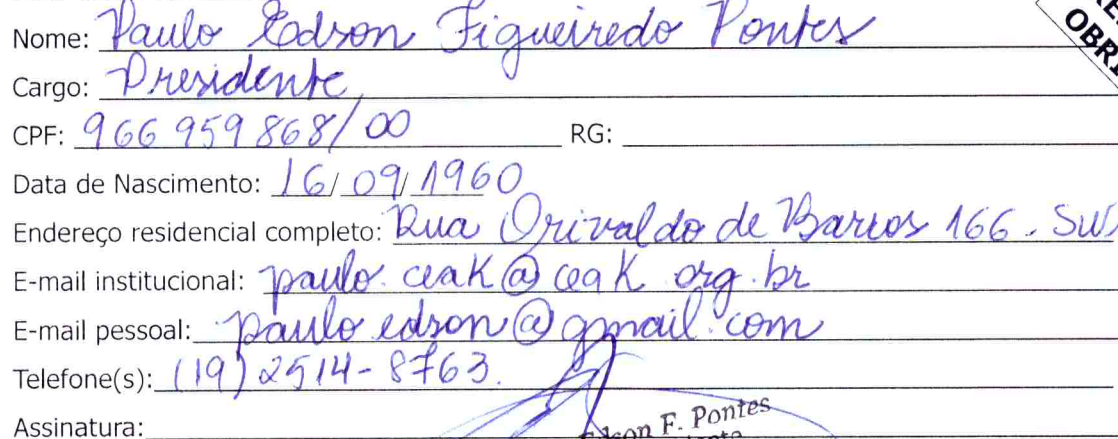 Nome: Paulo Edson Figueiredo Pontes
OBRI
Cargo: Presidente
CPF: 966 959 868/00 RG:
Data de Nascimento: 16/09/1960
Endereço residencial completo: Rua Orivaldo de Barros 166.
E-mail institucional: paulo.ceak@ceak.org.br
E-mail pessoal: paulo.edson@gmail.com
Telefone(s): (19) 2514-8763.
Assinatura:
F. Pontes